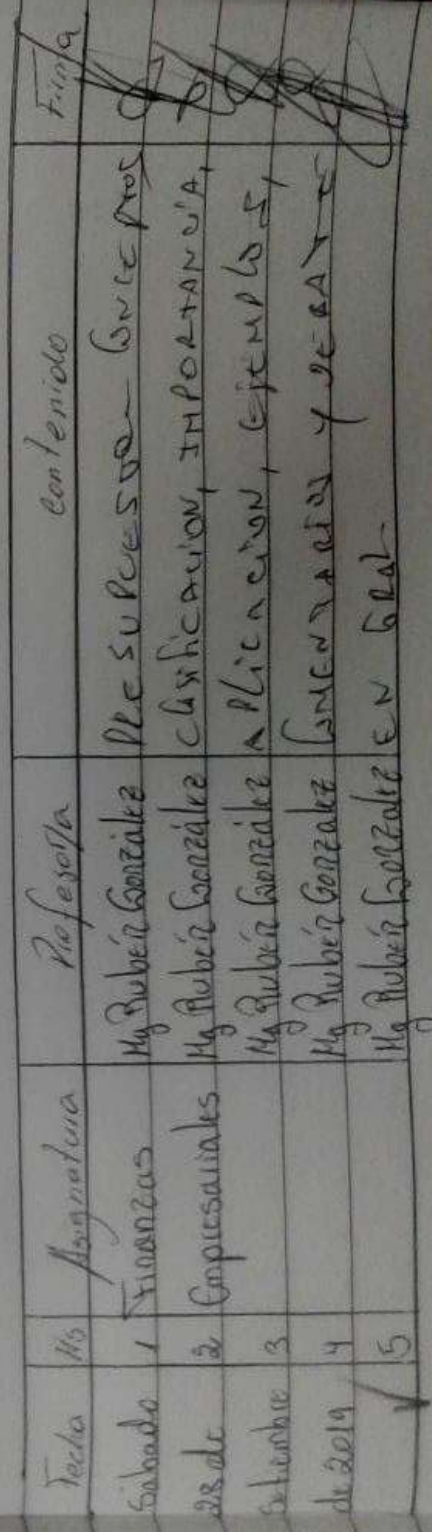 Fecha Hs Asignatura Profesor/a Contenido Firma
Sábado 1 Finanzas Mg Rubén González PRESUPUESTO CONCEPTOS
28 de 2 Empresariales Mg Rubén González Clasificación, IMPORTANCIA,
Setiembre 3 Mg Rubén González APLICACIÓN, EJEMPLOS,
de 2019 4 Mg Rubén González COMENTARIOS Y DEBATE
5 Mg Rubén González EN GRAL